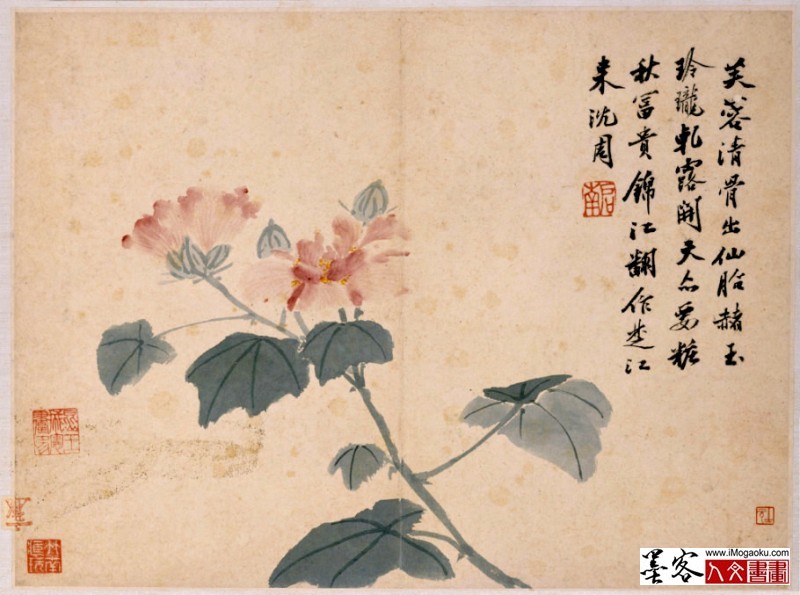 芙蓉清骨出仙胎赭玉
玲瓏軋露開天亦要粧
秋冨貴錦江翻作楚江
来沈周
启南
墨客
www.iMogaoku.com
人文書畫